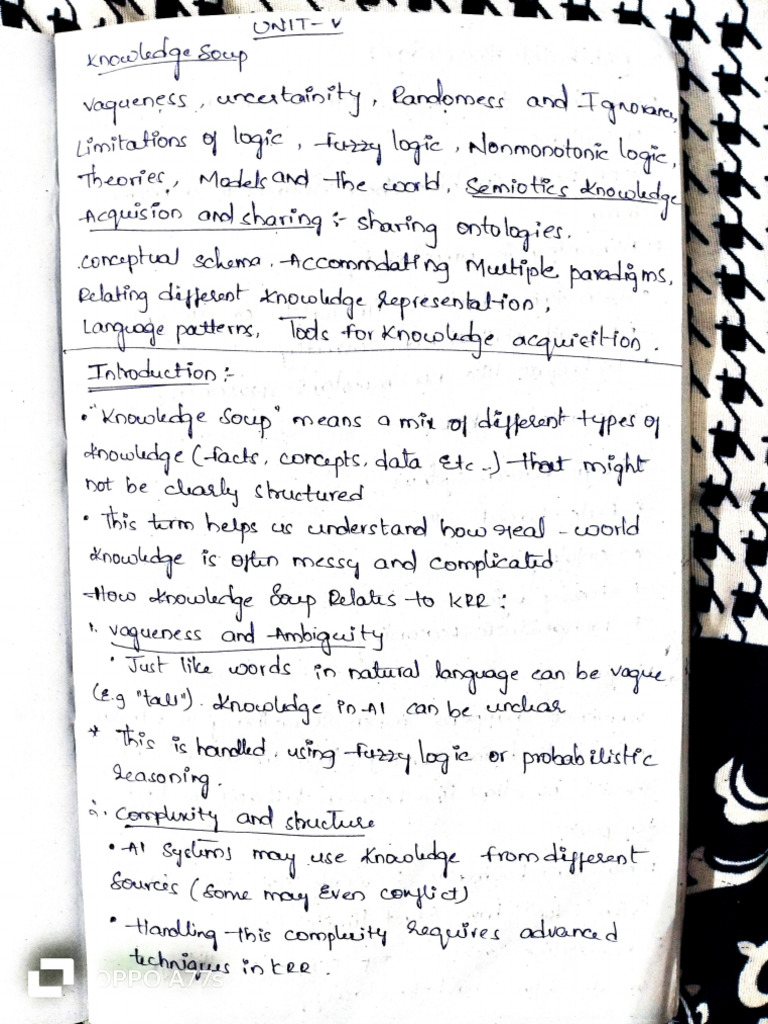 UNIT-V
Knowledge Soup
vagueness, uncertainity, Randomess and Ignorance,
Limitations of logic, fuzzy logic, Nonmonotonic logic,
Theories, Models and the world, Semiotics Knowledge
Acquision and sharing :- sharing ontologies.
conceptual schema, Accommdating Multiple paradigms,
Relating different knowledge representation,
Language patterns, Tools for knowledge acquisition.
Introduction :-
• "Knowledge Soup" means a mix of different types of
knowledge (facts, concepts, data etc..) that might
not be clearly structured
• This term helps us understand how real-world
knowledge is often messy and complicated
How knowledge Soup Relates to KRR :
1. vagueness and Ambiguity
• Just like words in natural language can be vague
(E.g "tall"). knowledge in AI can be unclear
* This is handled using fuzzy logic or probabilistic
reasoning.
2. complexity and structure
• AI systems may use knowledge from different
sources (some may Even conflict)
• Handling this complexity requires advanced
techniques in KRR.
OPPO A77s